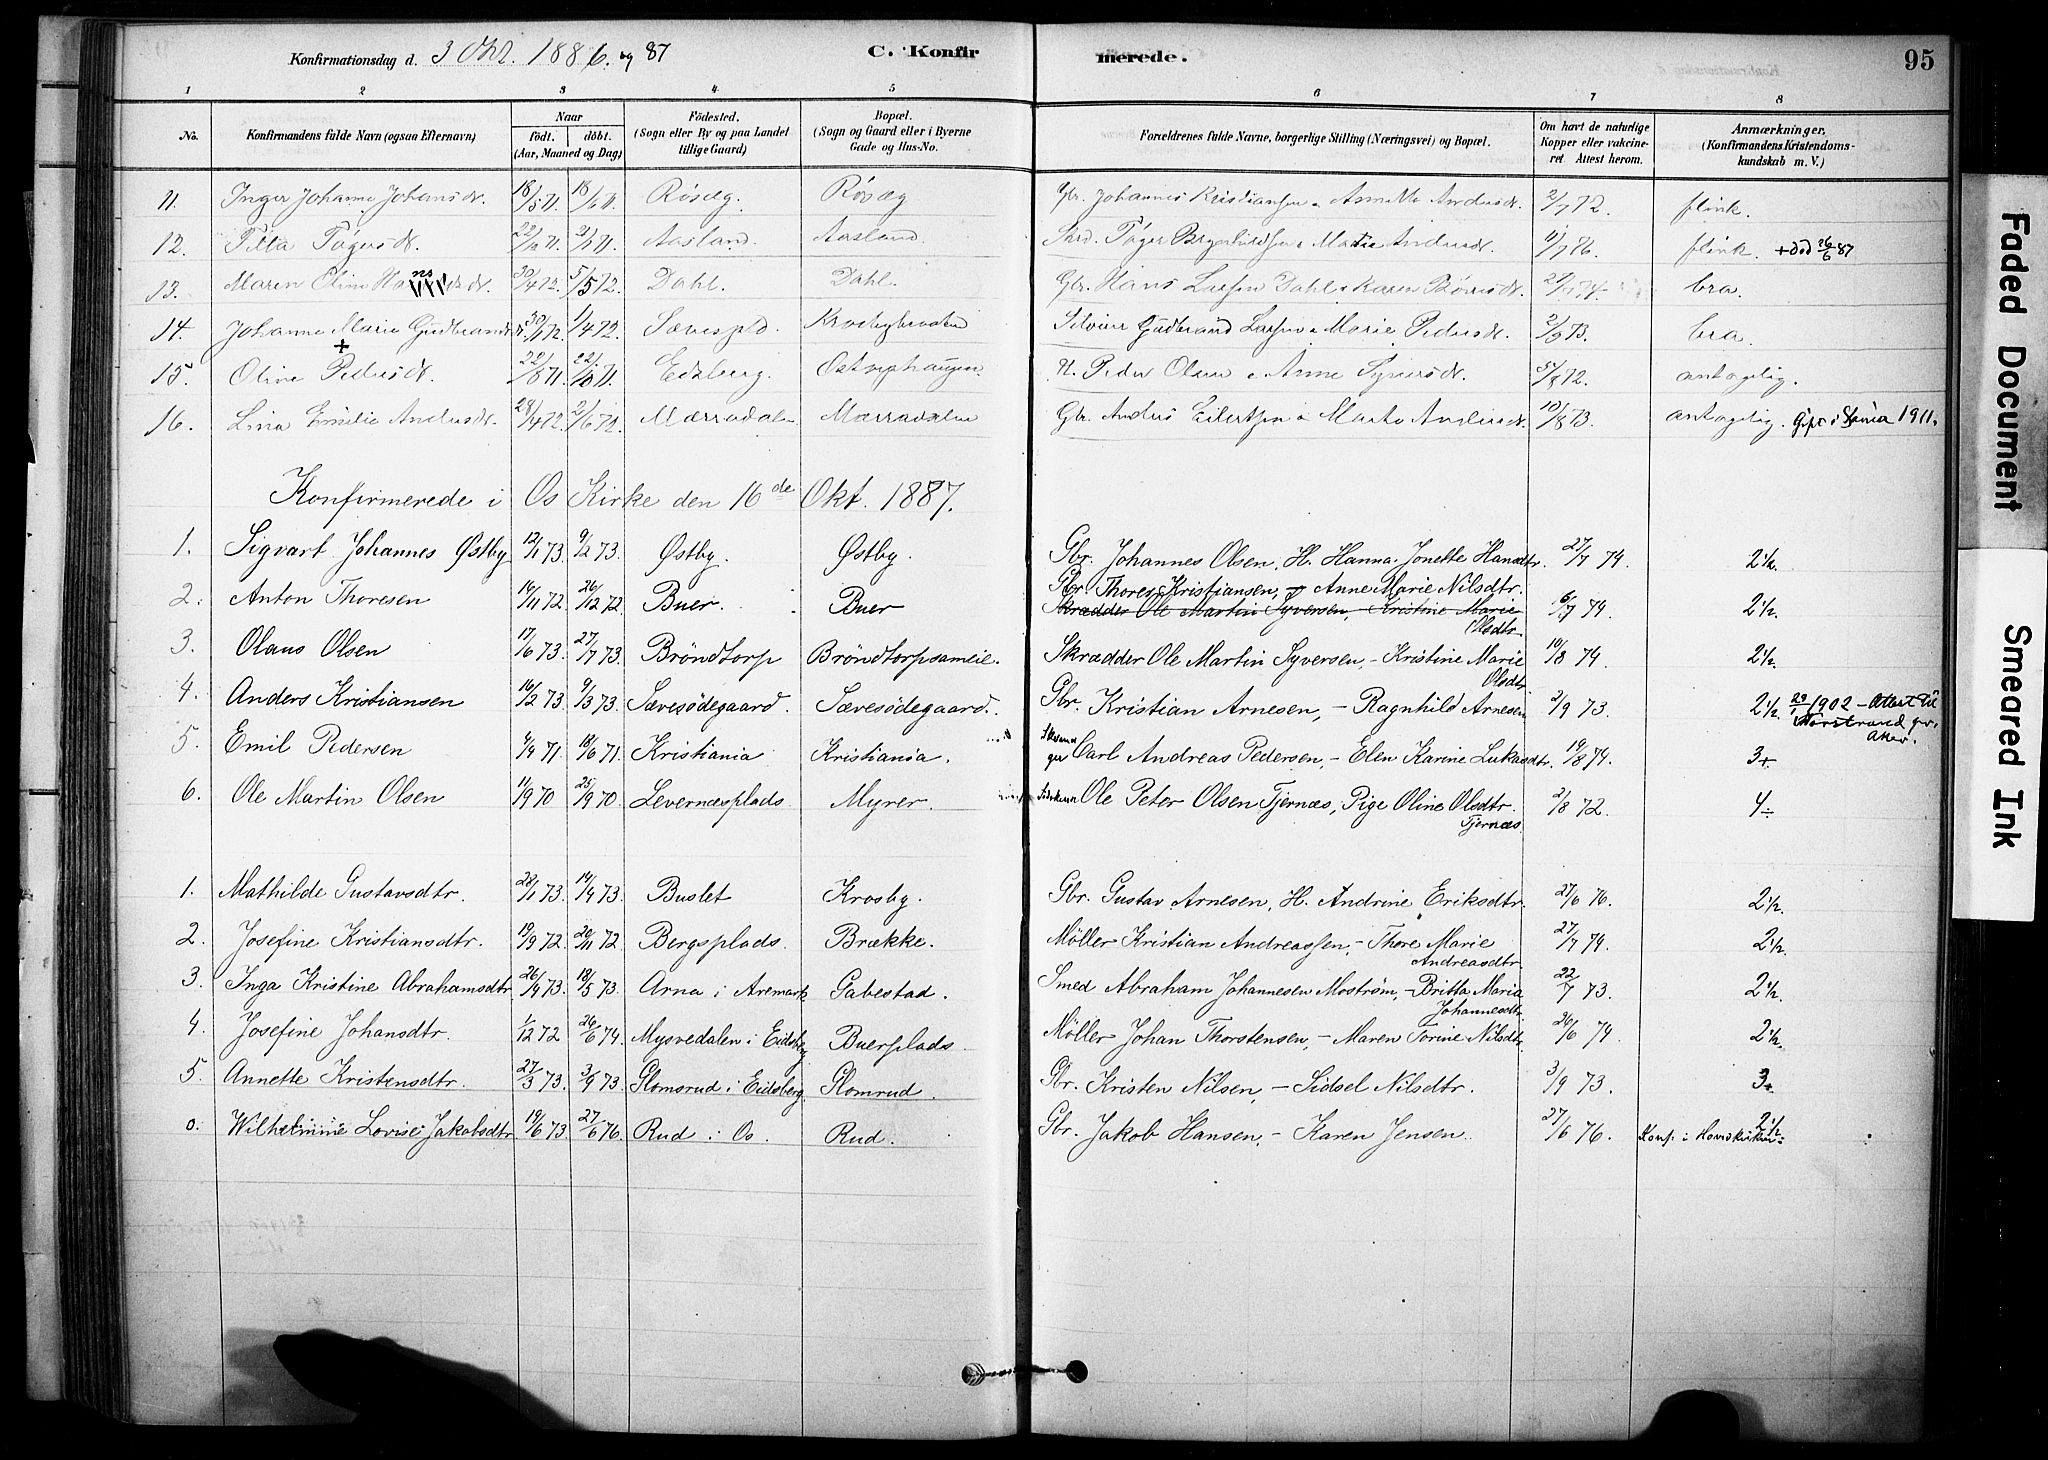 Konfirmationsdag d. 3 Okt. 1886. og 87 C. Konfirmerede. 95
1 2 3 4 5 6 7 8
No. Konfirmandens fulde Navn (ogsaa Efternavn) Naar født. døbt. (Aar, Maaned og Dag) Fødested. (Sogn eller By og paa Landet tillige Gaard) Bopæl. (Sogn og Gaard eller i Byerne Gade og Hus-No. Forældrenes fulde Navne, borgerlige Stilling (Næringsvei) og Bopæl. Om havt de naturlige Kopper eller vakcineret Attest herom. Anmærkninger, (Konfirmandens Kristendomskundskab m. V.)
11. Inger Johanne Johansdt. 18/5 71. 18/6 71. Røsæg. Røsæg Gbr. Johannes Kristiansen Annette Andersdt. 2/7 72. flink.
12. Aasland. Aasland flink. + død 26/6 87
13. Maren Oline 30/4 72. 5/5 72. Dahl. Dahl. Gbr. Hans Larsen Dahl bra.
14. Johanne Marie Gudbrandsdt. 1/4 72. Sævespld. Gudbrand Larsen Marie Pedersdt. 2/9 73. bra.
15. Olive + Pedersdt. Edsberg. Peder Olsen Anne 5/8 72. antagelig.
16. Lina Emilie Andersdt. 28/4 72. 2/6 72. Mærradalen Mærradalen Gbr. Anders Eilertsen Andersdt. 10/8 73. antagelig. 1911.
Konfirmerede i Os Kirke den 16de Okt. 1887.
1. Sigvart Johannes Østby 12/1 73. 9/2 73. Østby. Østby. Gbr. Johannes Olsen, H. Hanna Jonette Hansdtr. 27/7 74. 2½.
2. Anton Thoresen 16/11 72. 26/12 72. Buer. Buer Gbr. Thores Kristiansen, Anne Marie Nilsdtr. Skrædder Ole Martin Syversen, - Kristine Marie Olsdtr. 6/7 74. 2½.
3. Olaus Olsen 17/6 73. 27/7 73. Brøndtorp Brøndtorpsameie. Skrædder Ole Martin Syversen, - Kristine Marie Olsdtr. 10/8 74. 2½.
4. Anders Kristiansen 16/2 73. 9/3 73. Sævesødegaard. Sævesødegaard. Gbr. Kristian Arnesen, - Ragnhild Arnesen 2/9 73. 2½. 29/1 1902 - Attest til Norstrand Aker.
5. Emil Pedersen 4/4 71. 18/6 71. Kristiania Kristiania. Carl Andreas Pedersen, - Elen Karine Lukasdtr. 19/8 74. 3+
6. Ole Martin Olsen 11/9 70 25/9 70. Levernæsplads. Myrer. Ole Peter Olsen Tjernæs, Pige Oline Olsdtr. Tjernæs 2/8 72. 4÷
1. Mathilde Gustavsdtr. 28/1 73. 14/4 73. Buslet Krosby. Gbr. Gustav Arnesen, H. Andrine Eriksdtr. 27/6 76. 2½.
2. Josefine Kristiansdtr. 19/9 72. 20/11 72 Bergsplads. Brække. Møller Kristian Andreassen, - Thore Marie Andreasdtr. 27/7 74. 2½.
3. Inga Kristine Abrahamsdtr 26/4 73. 18/5 73. Arna i Aremark Gabestad. Smed Abraham Johannesen Mostrøm, - Britta Maria Johannesdtr. 22/7 73. 2½.
4. Josefine Johansdtr. 1/12 72 26/6 74. Mysvedalen i Eidsberg Buerplads. Møller Johan Thorstensen, - Maren Torine Nilsdtr. 26/6 74. 2½.
5. Annette Kristensdtr. 27/3 73. 3/9 73. Glomsrud i Eidsberg Glomrud. Gbr. Kristen Nilsen, - Sidsel Nilsdtr. 3/9 73. 3+
0. Wilhelmine Lovise Jakobsdtr 19/6 73. 27/6 76. Rud i Os. Rud. Gbr. Jakob Hansen, - Karen Jensen. 27/6 76. 2½ Konf. i
Faded Document
Smeared Ink